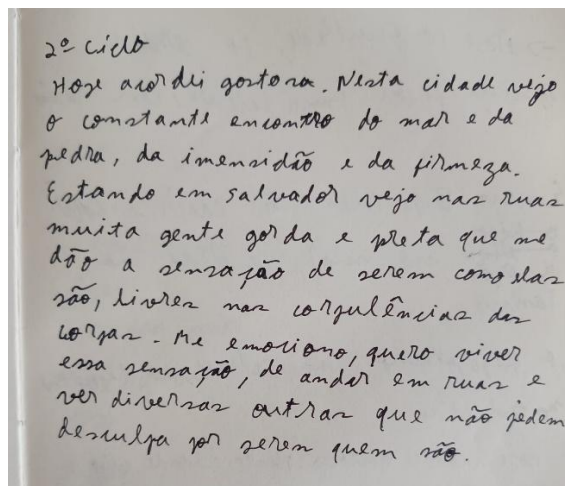 2º ciclo
Hoje acordei gostosa. Nesta cidade vejo
o constante encontro do mar e da
pedra, da imensidão e da firmeza.
Estando em Salvador vejo nas ruas
muita gente gorda e preta que me
dão a sensação de serem como elas
são, livres nas corpulências das
corpas. Me emociono, quero viver
essa sensação, de andar em ruas e
ver diversas outras que não pedem
desculpa por serem quem são.